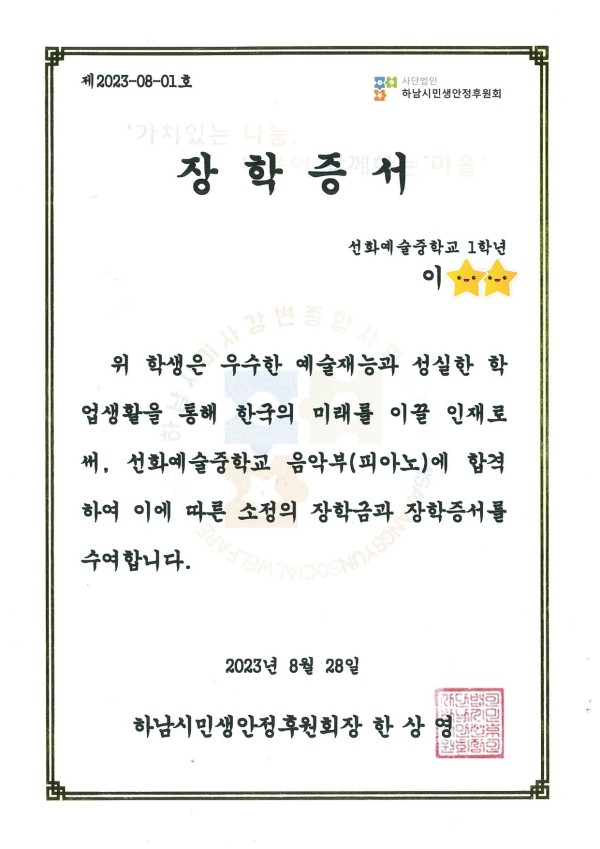 제2023-08-01호
사단법인
하남시민생안정후원회
'가치있는 나눔,
장 학 증 서
선화예술중학교 1학년
이
위 학생은 우수한 예술재능과 성실한 학
업생활을 통해 한국의 미래를 이끌 인재로
써, 선화예술중학교 음악부(피아노)에 합격
하여 이에 따른 소정의 장학금과 장학증서를
수여합니다.
2023년 8월 28일
하남시민생안정후원회장 한 상 영